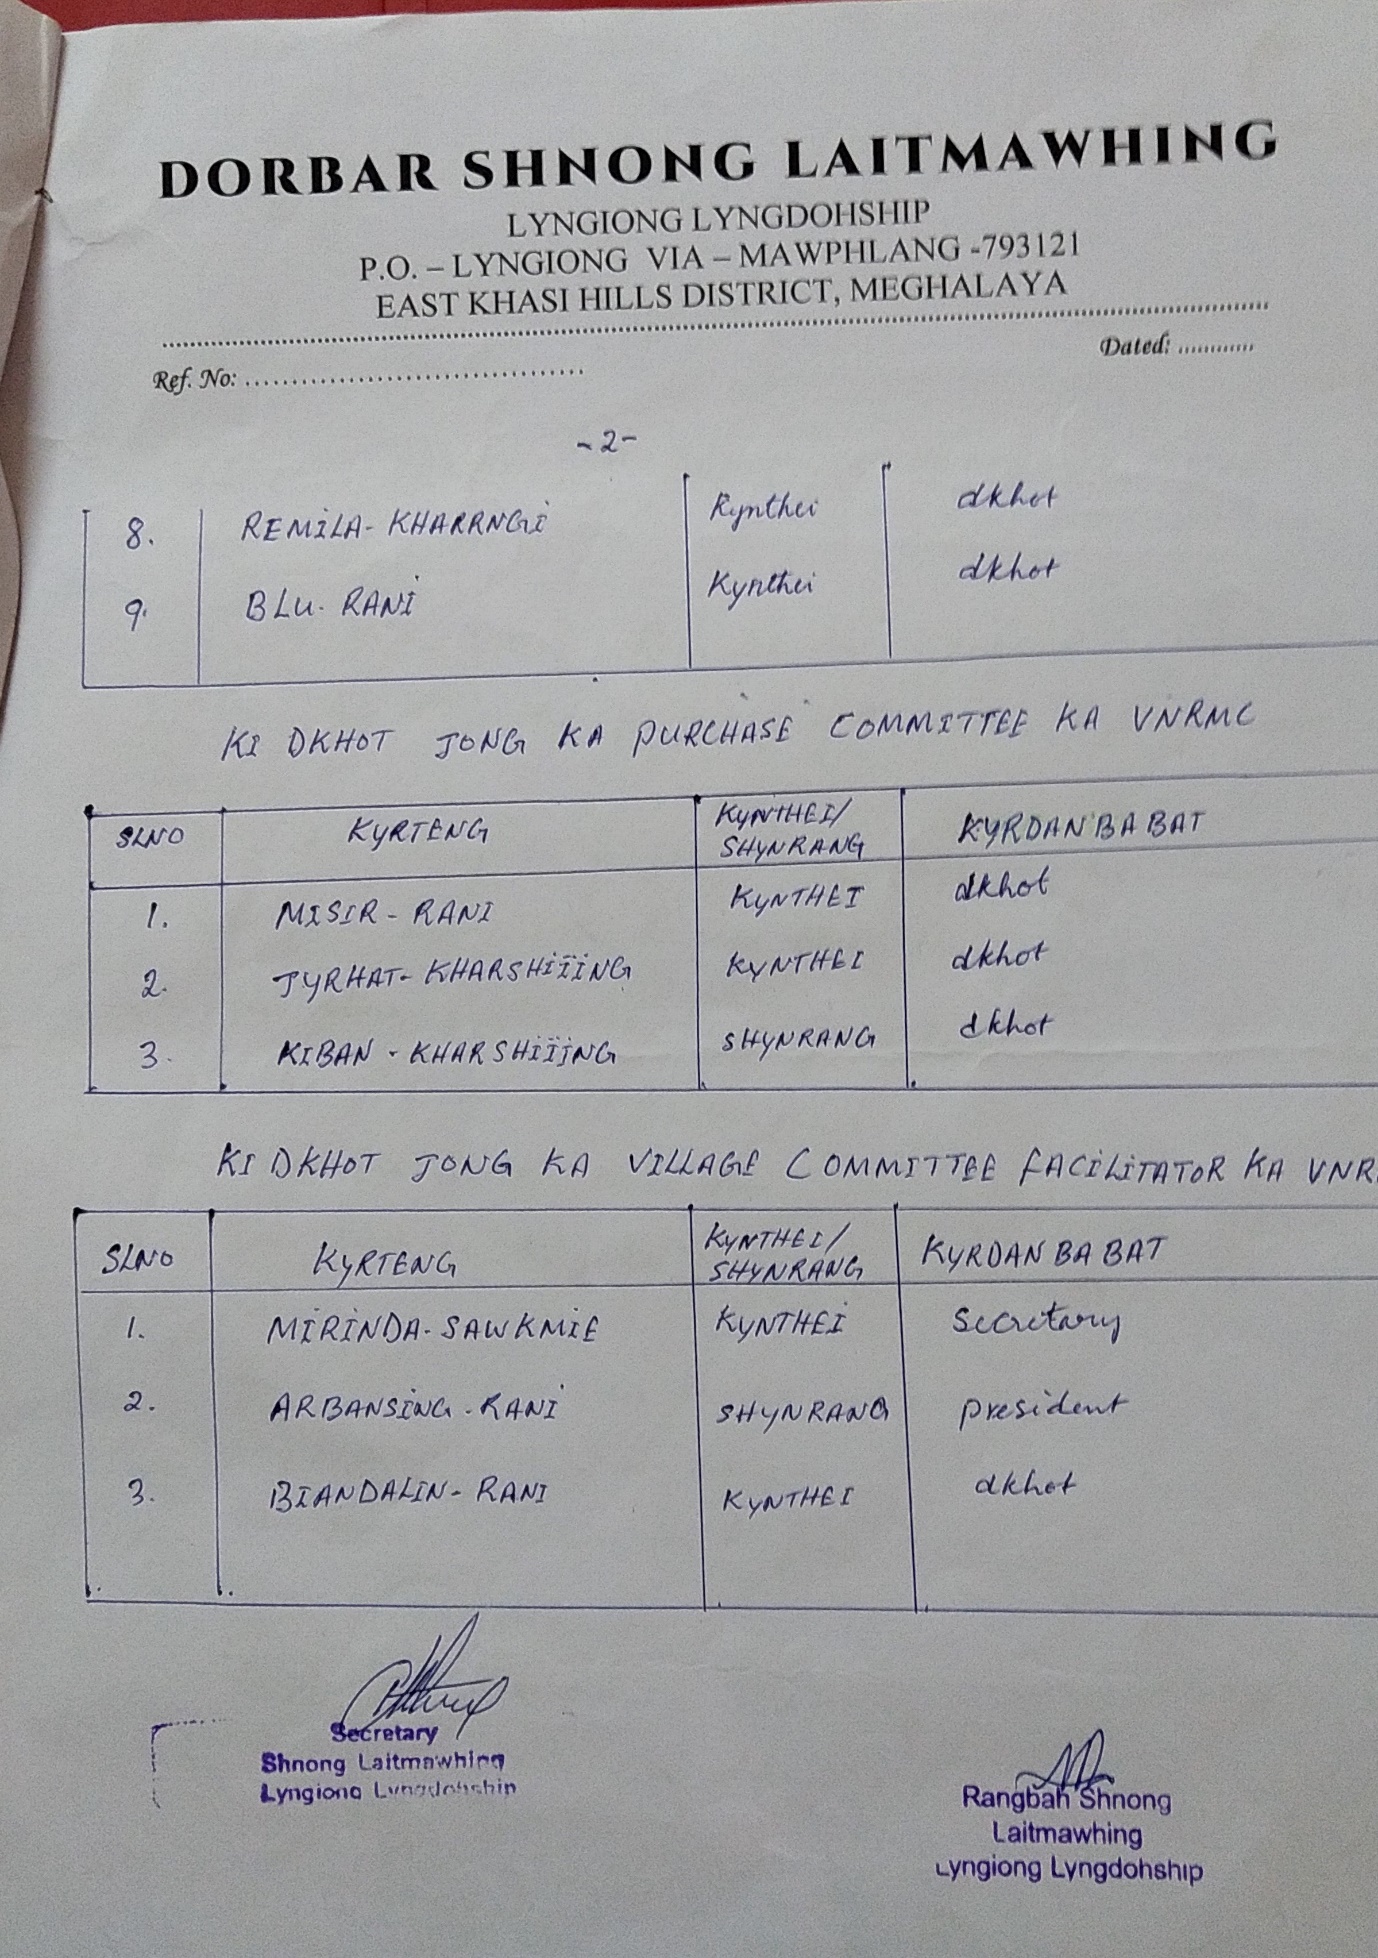 DORBAR SHNONG LAITMAWHING
LYNGIONG LYNGDOHSHIP
P.O. – LYNGIONG VIA – MAWPHLANG -793121
EAST KHASI HILLS DISTRICT, MEGHALAYA
Dated: ............
Ref. No: .....................................
-2-
8. REMILA- KHARRNGI Kynthei dkhot
9. BLU- RANI Kynthei dkhot
KI DKHOT JONG KA PURCHASE COMMITTEE KA VNRMC
SLNO KYRTENG KYNTHEI/ SHYNRANG KYRDAN BA BAT
1. MISIR - RANI KYNTHEI dkhot
2. JYRHAT- KHARSHIIING KYNTHEI dkhot
3. KIBAN - KHARSHIIING SHYNRANG dkhot
KI DKHOT JONG KA VILLAGE COMMITTEE FACILITATOR KA VNR
SLNO KYRTENG KYNTHEI/ SHYNRANG KYRDAN BA BAT
1. MIRINDA- SAWKMIE KYNTHEI Secretary
2. ARBANSING - RANI SHYNRANG president
3. BIANDALIN- RANI KYNTHEI dkhot
Secretary
Shnong Laitmawhing
Lyngiong Lyngdohship
Rangbah Shnong
Laitmawhing
Lyngiong Lyngdohship